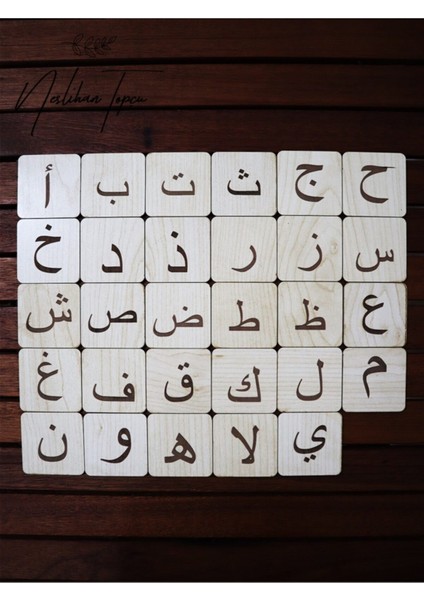 Neslihan Topcu
أ ب ت ث ج ح
خ د ذ ر ز س
ش ص ض ط ظ ع
غ ف ق ك ل م
ن و ه لا ي